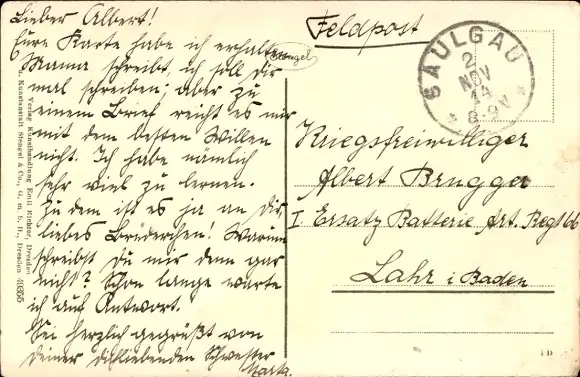 Lieber Albert!
Eure Karte habe ich erhalten
Mama schreibt ich soll dir
mal schreiben; aber zu
einem Brief reicht es mir
mit dem besten Willen
nicht. Ich habe nämlich
sehr viel zu lernen.
Zu dem ist es ja an dir,
liebes Brüderchen! Warum
schreibst du mir denn gar
nicht? Schon lange warte
ich auf Antwort.
Sei herzlich gegrüßt von
Deiner dichliebenden Schwester
Marta.
Verlag Kunsthandlung Emil Richter, Dresden
u. Kunstanstalt Stengel & Co., G. m. b. H., Dresden 49355
Feldpost
Stengel
SAULGAU
2
NOV
14
8-9V
Kriegsfreiwilliger
Albert Brugger
I Ersatz Batterie Art. Regt 66
Lahr i Baden